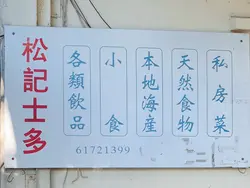 松記士多
各類飲品
小食
本地海產
天然食物
私房菜
61721399